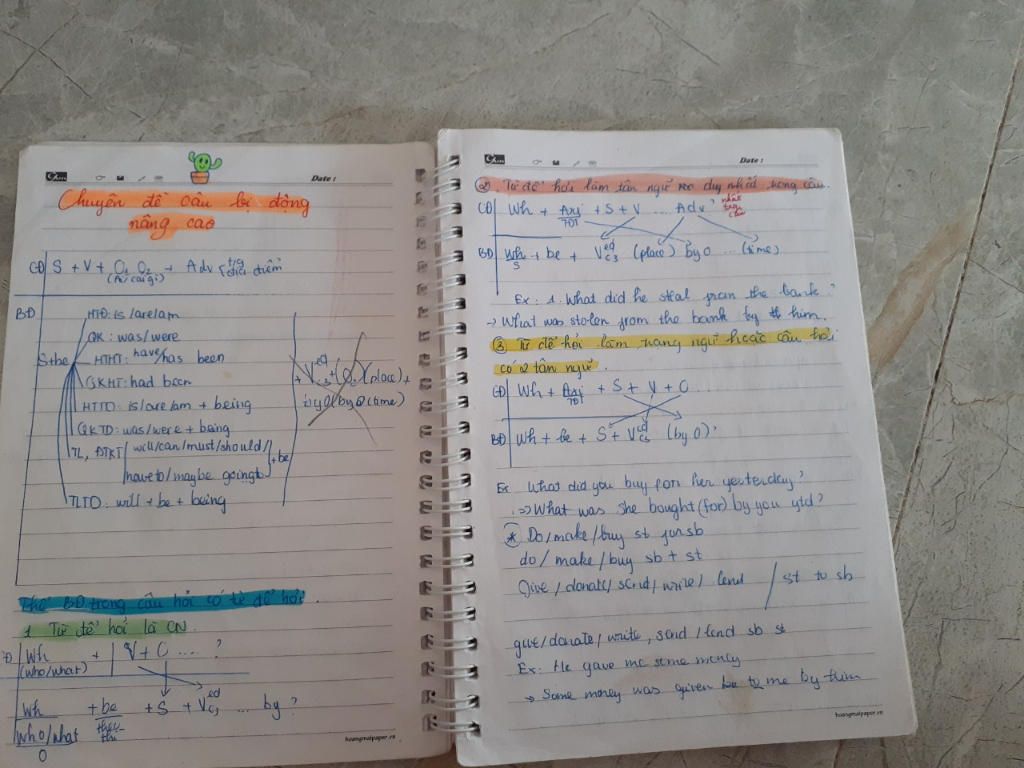 Date :
Chuyên đề câu bị động
nâng cao
CĐ S + V + O₁ O₂ + Adv
(Ai/cái gì) địa điểm
BĐ
HTĐ: is/are/am
QK: was/were
S+be HTHT: have/has been
QKHT: had been
HTTD: is/are/am + being
QKTD: was/were + being
TL, ĐTKT will/can/must/should/
have to/maybe going to + be
TLTD: will + be + being
+ V ed c3 + (O₂) (place) +
by O (by O) (time)
Thể BĐ trong câu hỏi có từ để hỏi.
1. Từ để hỏi là CN
CĐ Wh + V + O .... ?
(who/what)
Wh + be + S + V ed c3 ... by ?
Who/what
O
hoangmaipaper.vn
Date :
② Từ để hỏi làm tân ngữ duy nhất trong câu.
CĐ Wh + Aux + S + V ... Adv ?
TĐT
BĐ Wh + be + V ed c3 (place) by O ... (time)
S
Ex: 1. What did he steal from the bank?
→ What was stolen from the bank by him.
③ Từ để hỏi làm trạng ngữ hoặc câu hỏi
có 2 tân ngữ.
CĐ Wh + Aux + S + V + O
TĐT
BĐ Wh + be + S + V ed c3 (by O)?
Ex: What did you buy for her yesterday?
⇒ What was she bought (for) by you ytd?
* Do/make/buy st for sb
do / make / buy sb + st
Give / donate / send / write / lend / st to sb
give/donate/write, send / lend sb st
Ex: He gave me some money
→ Some money was given to me by him
hoangmaipaper.vn